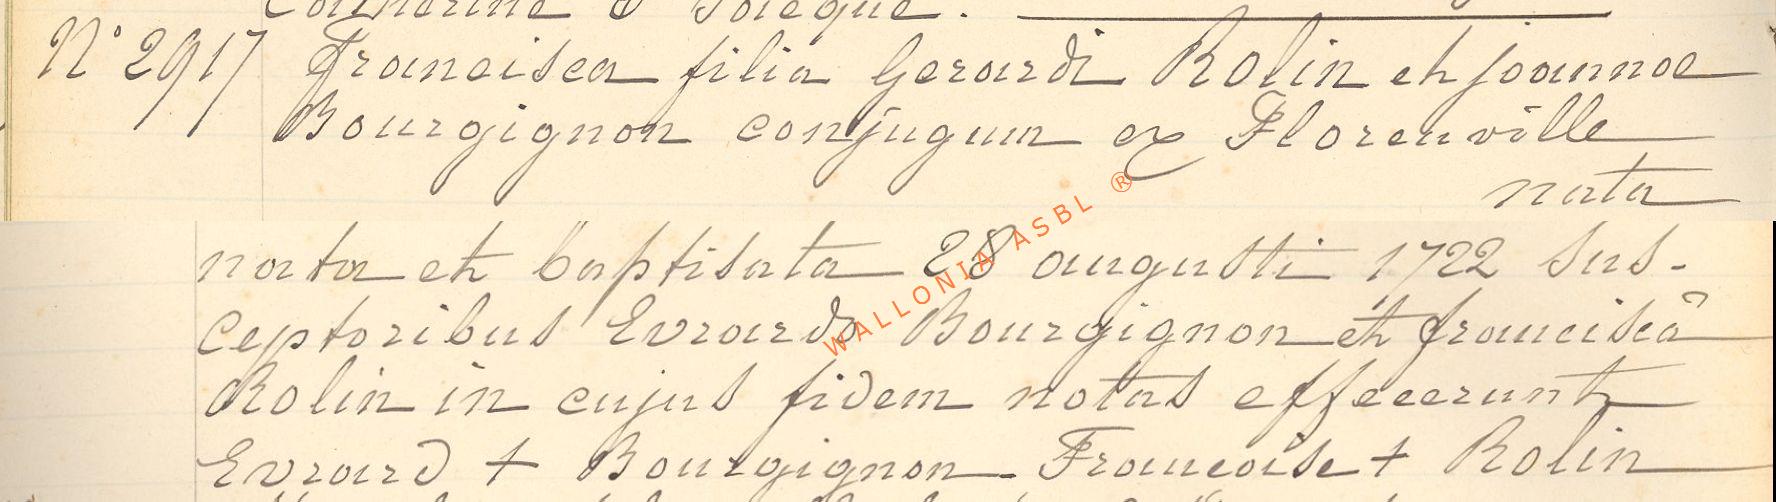 Catherine & Jacque.
N° 2917 Francisca filia Gerardi Rolin et joannae
Bourgignon conjugum ex Florenville
nata
nata et baptisata 28 augusti 1722 sus-
ceptoribus Evrardo Bourgignon et franciscâ
Rolin in cujus fidem notas effecerunt
Evrard + Bourgignon Francoise + Rolin
WALLONIA ASBL ®